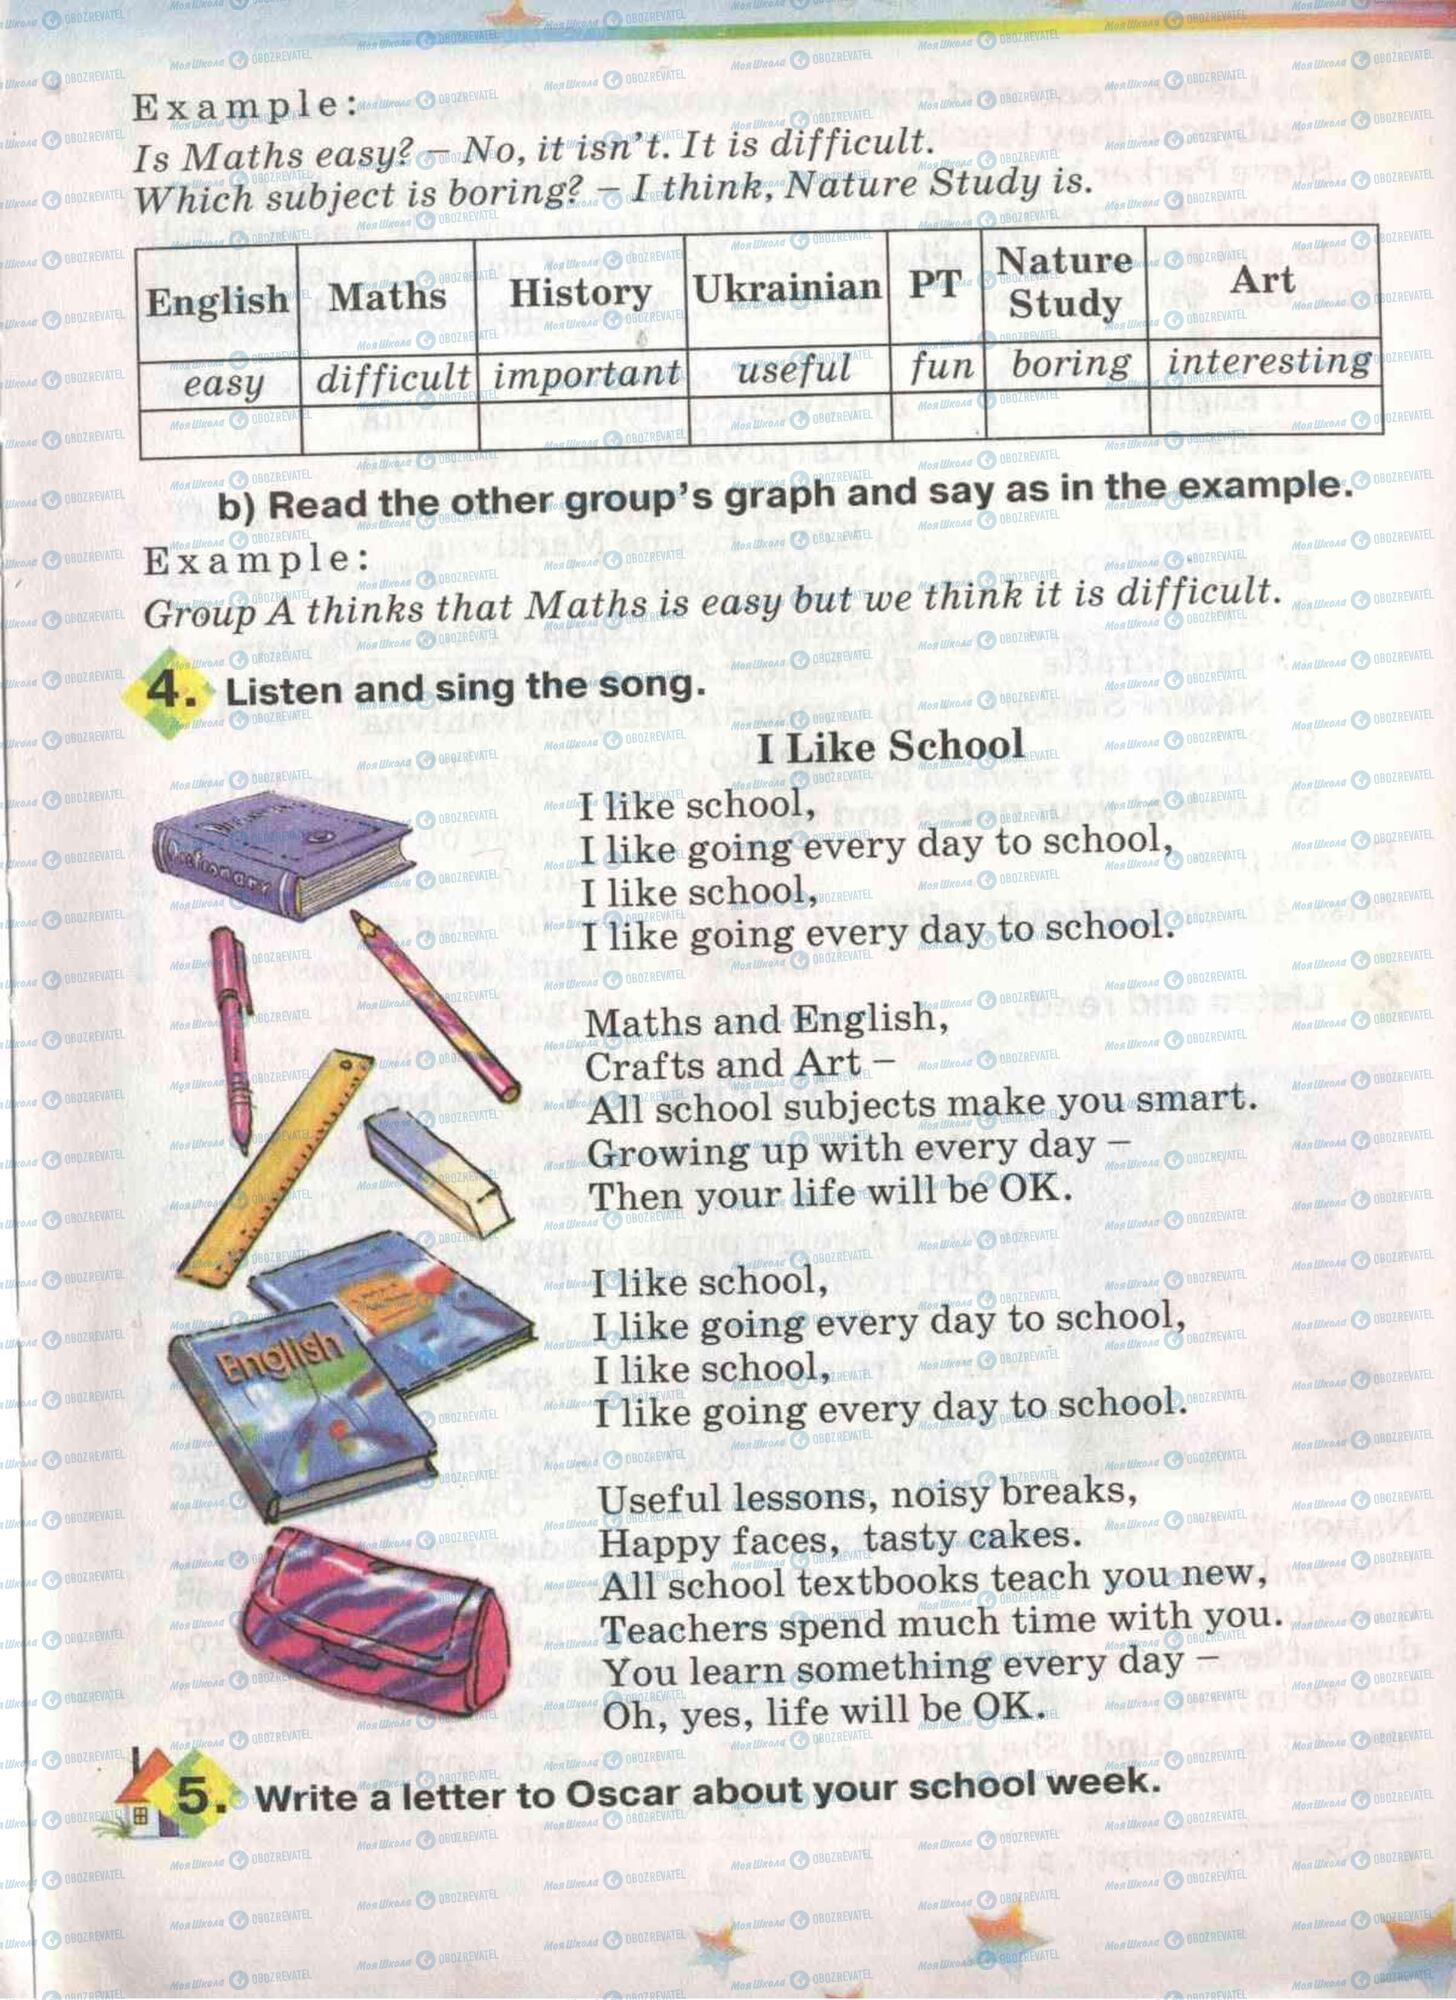 Example:
Is Maths easy? – No, it isn't. It is difficult.
Which subject is boring? – I think, Nature Study is.
English Maths History Ukrainian PT Nature Study Art
easy difficult important useful fun boring interesting
b) Read the other group's graph and say as in the example.
Example:
Group A thinks that Maths is easy but we think it is difficult.
4. Listen and sing the song.
I Like School
I like school,
I like going every day to school,
I like school,
I like going every day to school.
Maths and English,
Crafts and Art –
All school subjects make you smart.
Growing up with every day –
Then your life will be OK.
I like school,
I like going every day to school,
I like school,
I like going every day to school.
Useful lessons, noisy breaks,
Happy faces, tasty cakes.
All school textbooks teach you new,
Teachers spend much time with you.
You learn something every day –
Oh, yes, life will be OK.
Dictionary
English
5. Write a letter to Oscar about your school week.
Моя Школа OBOZREVATEL